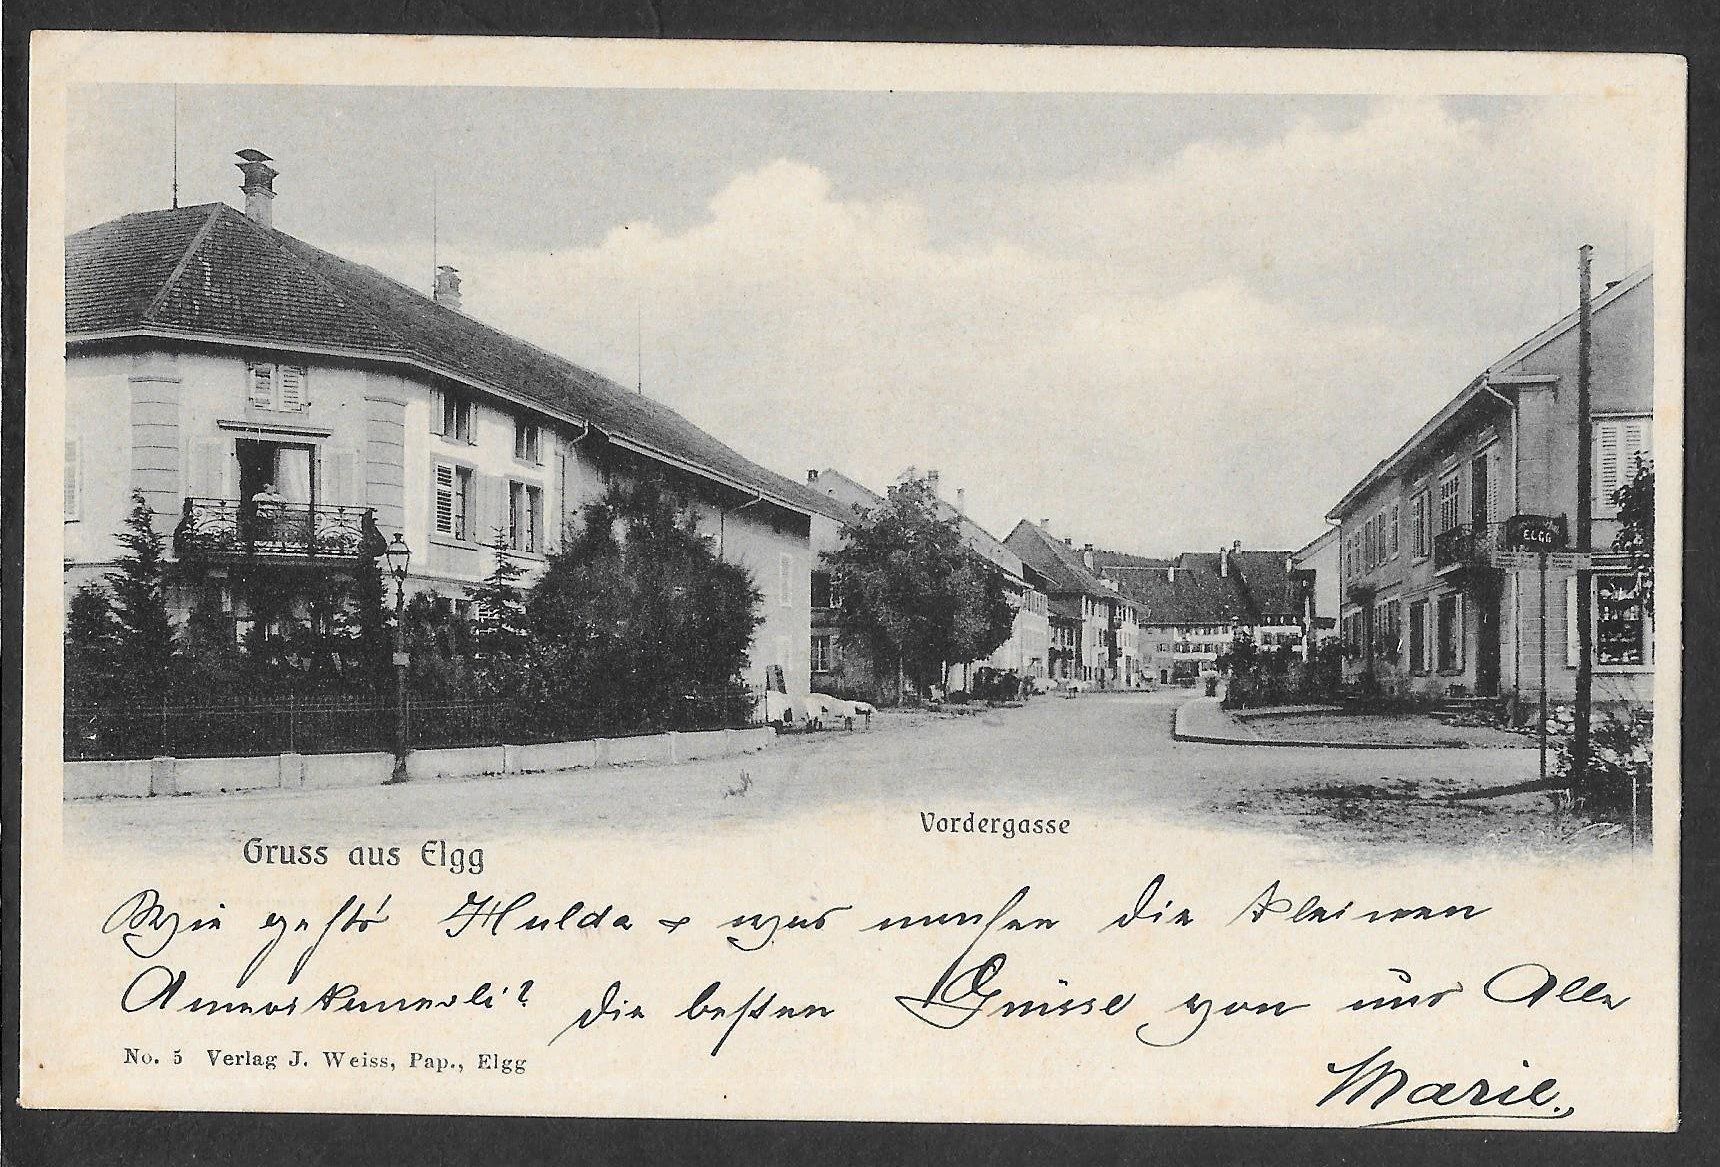 ELGG
Vordergasse
Gruss aus Elgg
Wie geht's Hulda & was machen die kleinen
Amerikanerli? Die besten Grüsse von uns Alle
No. 5 Verlag J. Weiss, Pap., Elgg
Marie.